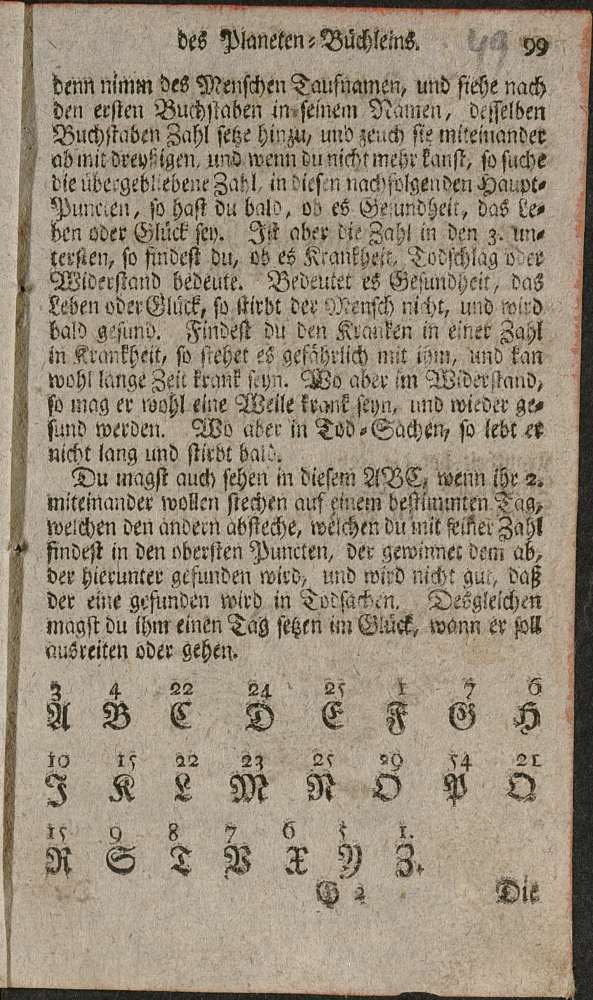 des Planeten-Büchleins. 49 99
denn nimm des Menschen Taufnamen, und siehe nach
den ersten Buchstaben in seinem Namen, desselben
Buchstaben Zahl setze hinzu, und zeuch sie miteinander
ab mit dreyßigen, und wenn du nicht mehr kanst, so suche
die übergebliebene Zahl, in diesen nachfolgenden Haupt-
Puncten, so hast du bald, ob es Gesundheit, das Le-
ben oder Glück sey. Ist aber die Zahl in den 3. un-
tersten, so findest du, ob es Krankheit, Todschlag oder
Widerstand bedeute. Bedeutet es Gesundheit, das
Leben oder Glück, so stirbt der Mensch nicht, und wird
bald gesund. Findest du den Kranken in einer Zahl
in Krankheit, so stehet es gefährlich mit ihm, und kan
wohl lange Zeit krank seyn. Wo aber im Widerstand,
so mag er wohl eine Weile krank seyn, und wieder ge-
sund werden. Wo aber in Tod-Sachen, so lebt er
nicht lang und stirbt bald.
Du magst auch sehen in diesem ABC, wenn ihr 2.
miteinander wollen stechen auf einem bestimmten Tag,
welchen den andern absteche, welchen du mit seiner Zahl
findest in den obersten Puncten, der gewinnet dem ab,
der hierunter gefunden wird, und wird nicht gut, daß
der eine gefunden wird in Todsachen. Desgleichen
magst du ihm einen Tag setzen im Glück, wann er soll
ausreiten oder gehen.
3 4 22 24 25 1 7 6
A B C D E F G H
10 15 22 23 25 29 54 21
I K L M N O P Q
15 9 8 7 6 5 1.
R S T V X Y Z.
G 2 Die